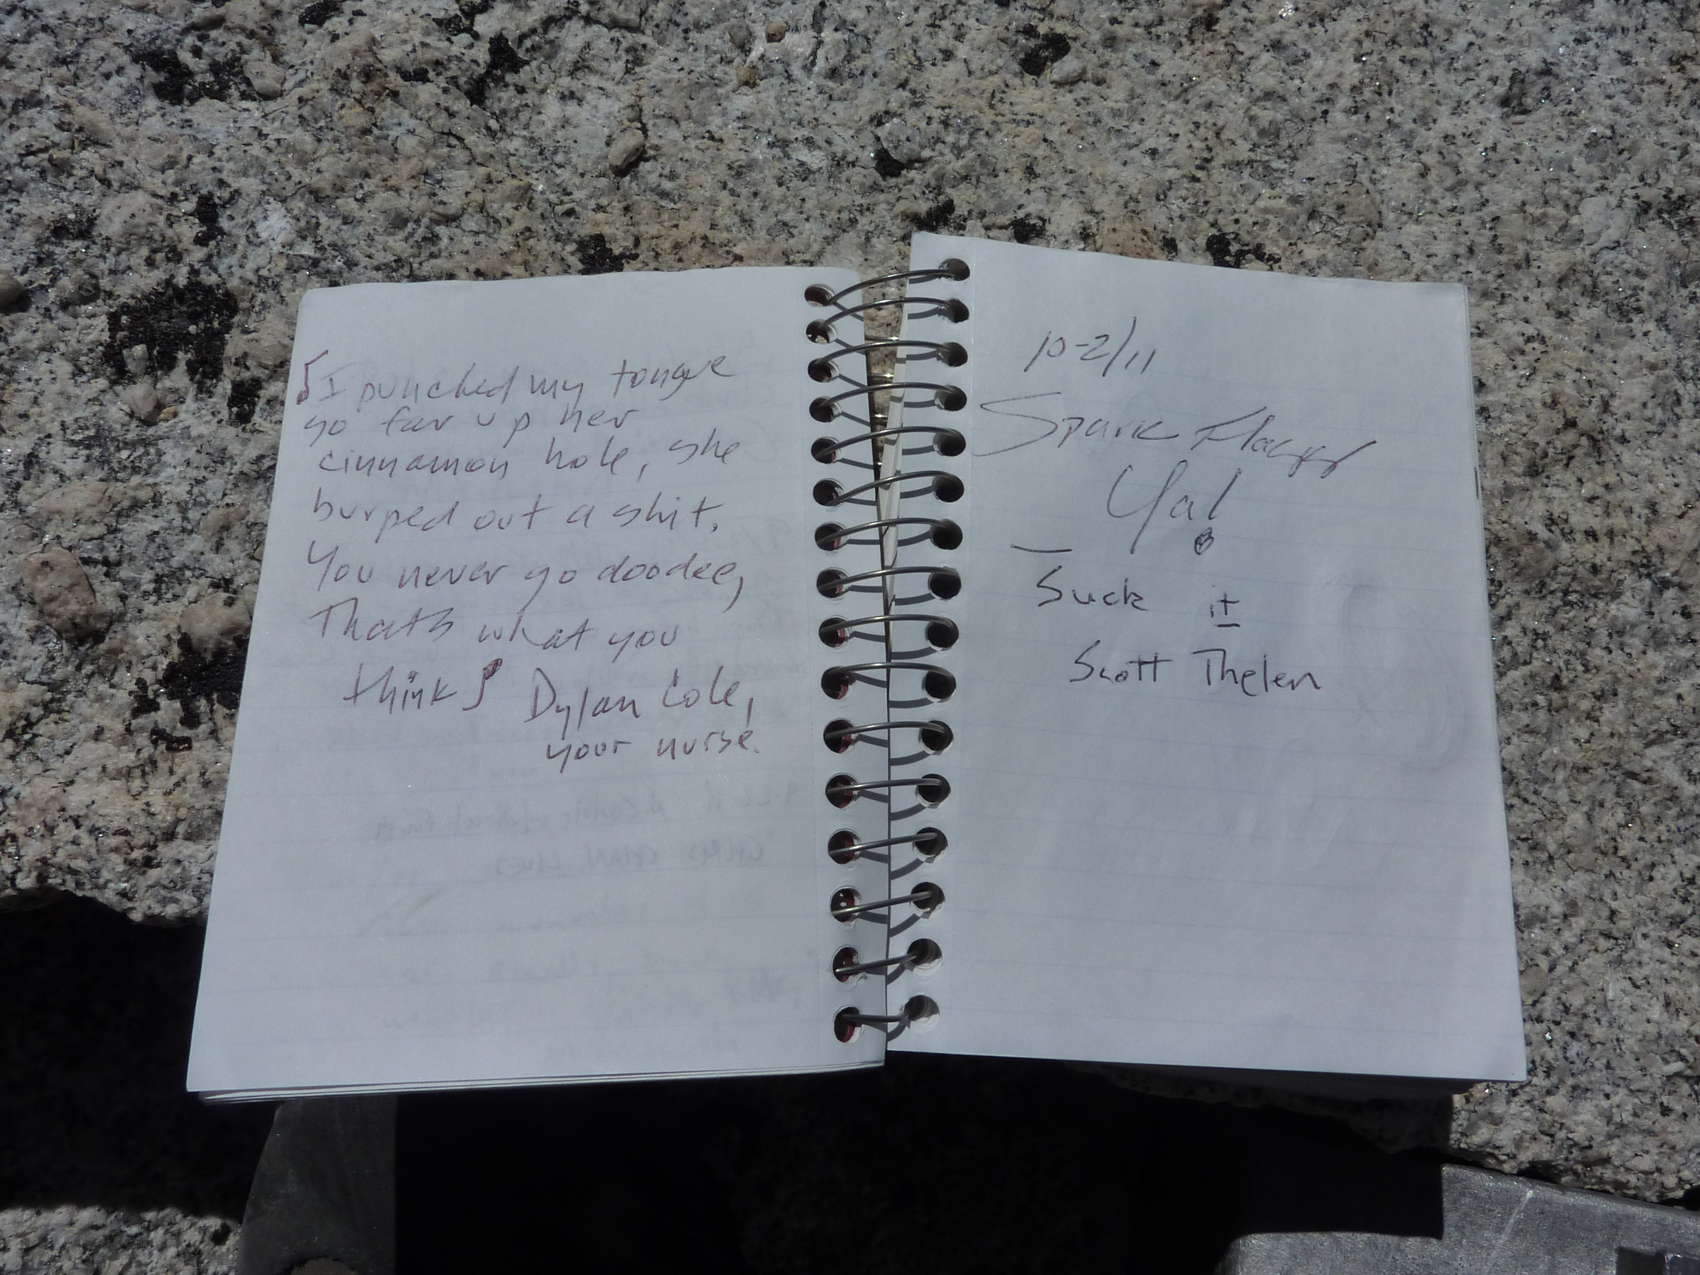 ♪ I punched my tongue
so far up her
cinnamon hole, she
burped out a shit.
You never go doodee,
That's what you
think ♪ Dylan Cole,
your nurse.
10-2/11
Spark
Ya!
Suck it
Scott Thelen